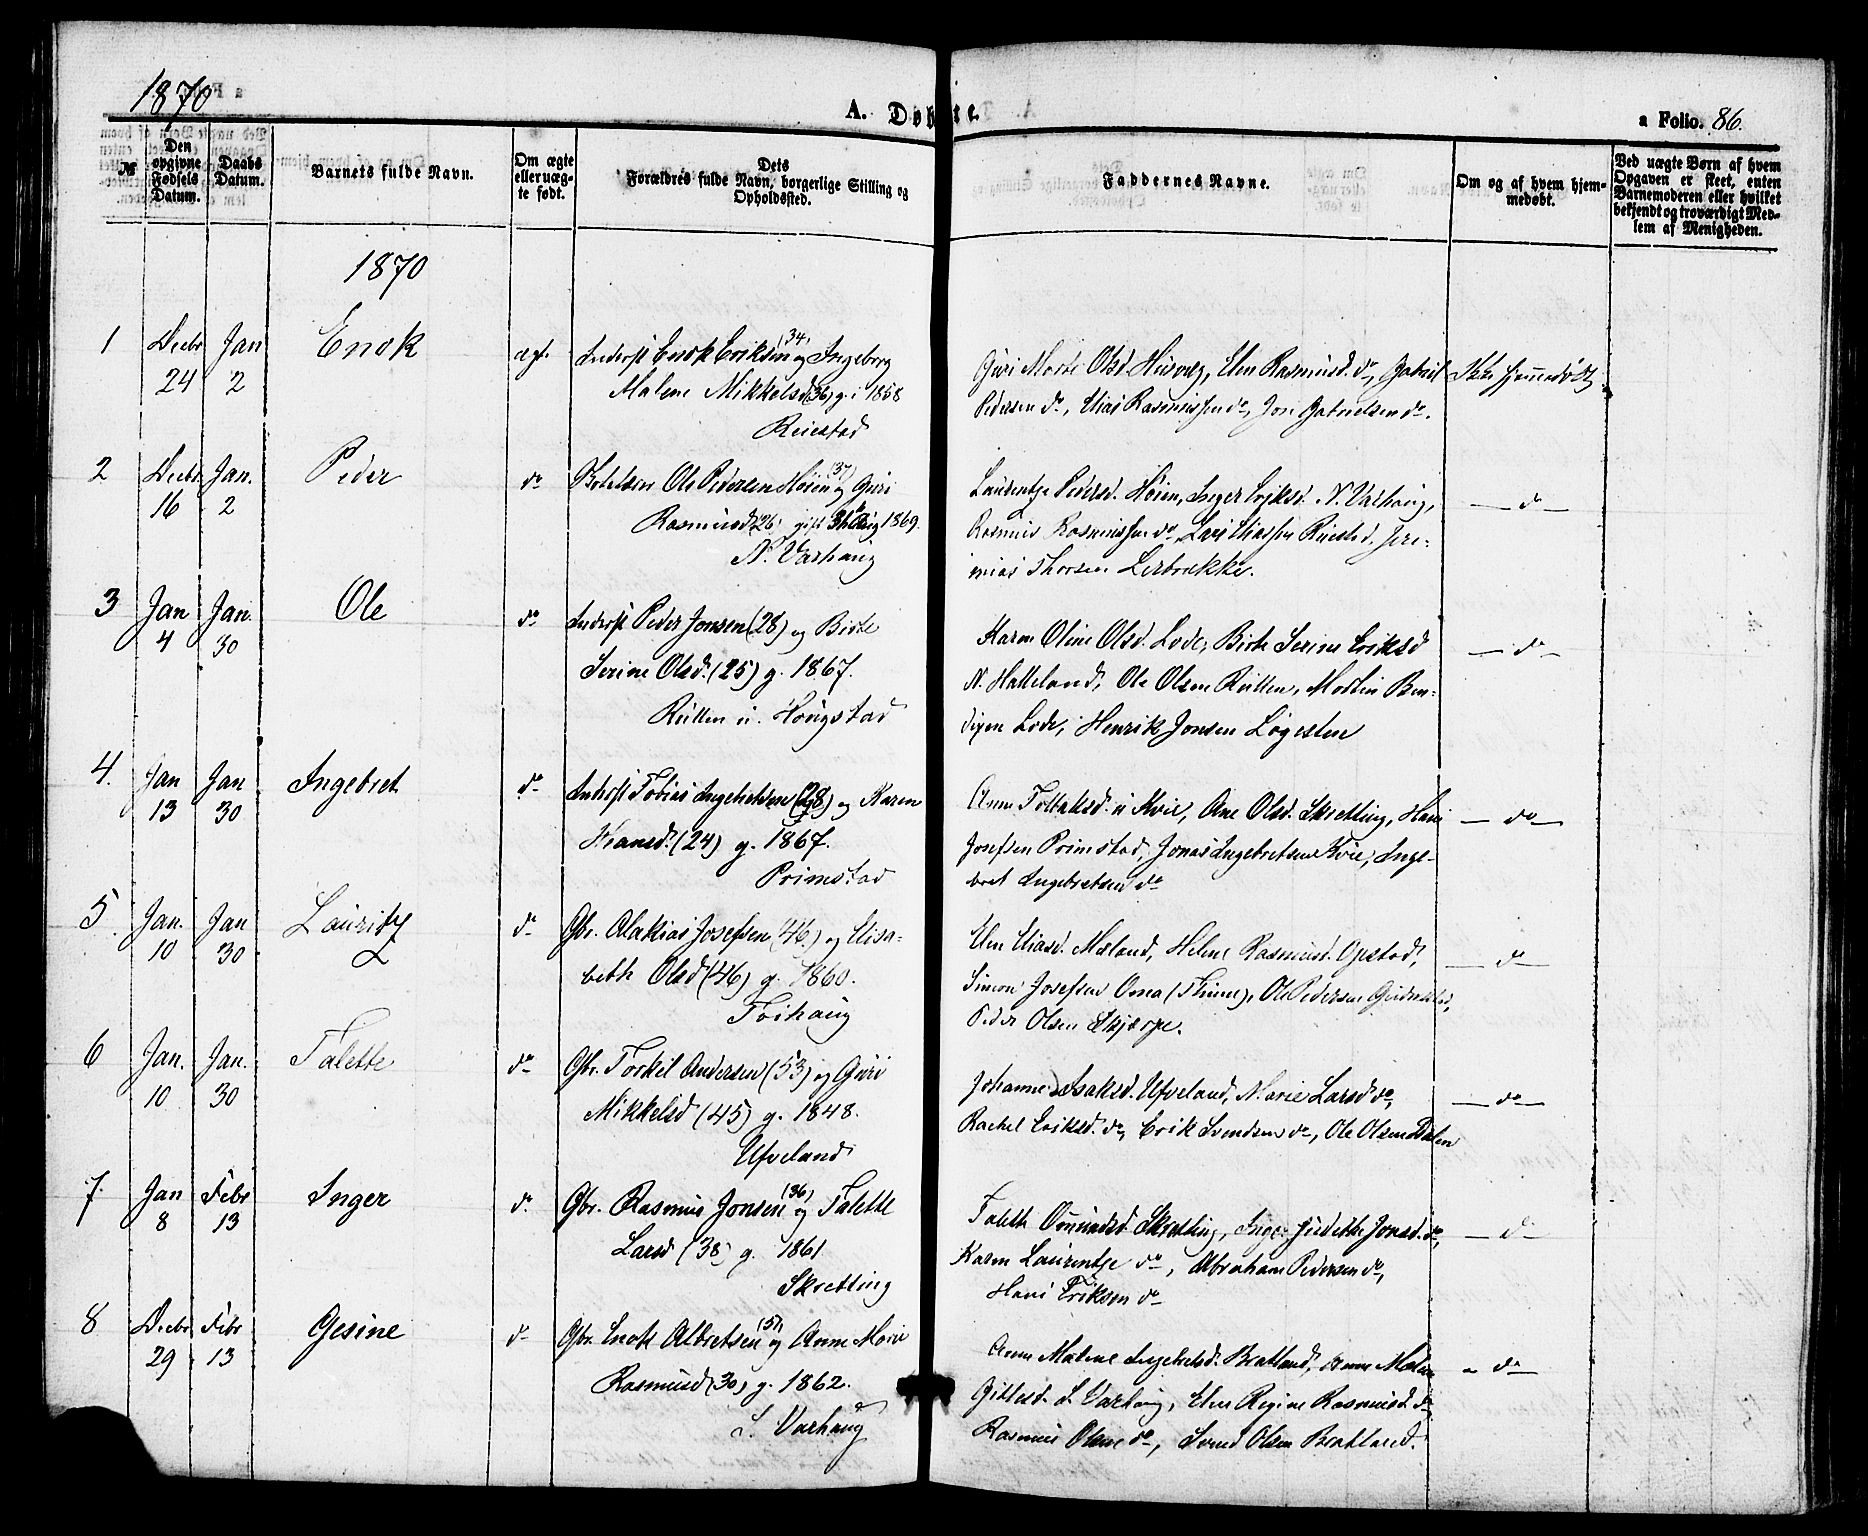 1870
A. Døbte.
a Folio. 86.
№
Den opgivne Fødsels Datum.
Daabs Datum.
Barnets fulde Navn.
Om ægte eller uægte født.
Dets Forældres fulde Navn, borgerlige Stilling og Opholdssted.
Faddernes Navne.
Om og af hvem hjemmedøbt.
Ved uægte Børn af hvem Opgaven er skeet, enten Barnemoderen eller hvilket bekjendt og troværdigt Medlem af Menigheden.
1870
1 Decbr 24 Jan 2 Enok ægt.
Inderst Enok Eriksen (34) og Ingeborg
Malene Mikkelsd (36) g. i 1858
Reiestad
Guri Marte Olsd. Husvæg, Elen Rasmusd. do, Gabriel
Pedersen do, Elias Rasmussen do, Jon Gabrielsen do.
Ikke hjemmedøbt
2 Decbr. 16 Jan. 2 Peder do
Ole Pedersen Høien (37) og Guri
Rasmusd (26) gift Aug 1869.
N. Varhaug
Laurentze Pedersd. Høien, Inger Eriksd. N. Varhaug,
Rasmus Rasmussen do, Lars Eliassen Reiestad, Jere-
mias Thorsen Lerbrække.
— do —
3 Jan 4 Jan. 30 Ole do
Inderst Peder Jonsen (28) og Birte
Serine Olsd. (25) g. 1867.
Rutlen u. Hougstad
Karen Oline Olsd. Lode, Birte Serine Eriksd
N. Hatteland, Ole Olsen Rutlen, Martin Ben-
digen Lode, Henrik Jonsen Løgesten
— do —
4. Jan 13 Jan 30 Ingebret do
Inderst Tobias Ingebretsen (28) og Karen
Fransd. (24) g. 1867.
Primstad
Anne Tollaksd. u Kvie, Ane Olsd. Skretting, Hans
Josefsen Primstad, Jonas Ingebretsen Kvie, Inge-
bret Ingebretsen do
— do —
5 Jan. 10 Jan 30 Lauritz do
Gbr. Malakias Josefsen (46) og Elisa-
beth Olsd (46) g. 1860.
Toihaug
Elen Eliasd. Mæland, Helene Rasmusd. Opstad,
Simon Josefsen Oma (Thime), Ole Pedersen
Peder Olsen Skjærpe.
— do —
6 Jan. 10 Jan. 30 Talette do
Gbr. Torkel Andersen (53) og Guri
Mikkelsd (45) g. 1848.
Ufveland
Johanne Isaksd. Ufveland, Marie Larsd do,
Rachel Eriksd. do, Erik Svendsen do, Ole Olsen Dalen
— do —
7. Jan 8 Febr 13 Inger do
Gbr. Rasmus Jonsen (36) og Talette
Larsd (38) g. 1861
Skretting
Talette Omundsd. Skretting, Inger Judithe Jonsd. do,
Karen Laurentze do, Abraham Pedersen do,
Hans Eriksen do
— do —
8 Decbr 29 Febr 13 Gesine do
Gbr. Enok Albretsen (51) og Anne Marie
Rasmusd (30) g. 1862.
S. Varhaug
Anne Malene Ingebretsd. Bratland, Anne Malene
Gitlesd. S. Varhaug, Elen Regine Rasmusd. do,
Rasmus Olsen do, Svend Olsen Bratland.
— do —